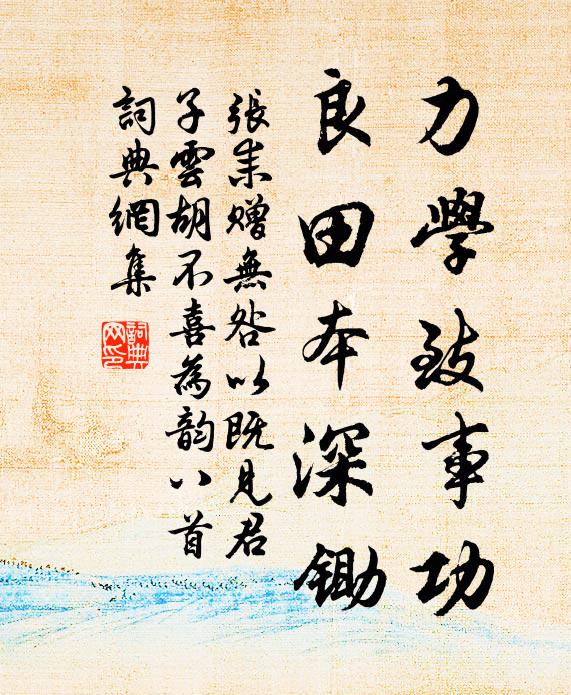 力學致事功
良田本深鋤
張耒贈無咎以既見君
子雲胡不喜為韵八首
詞典網集
詞典網印